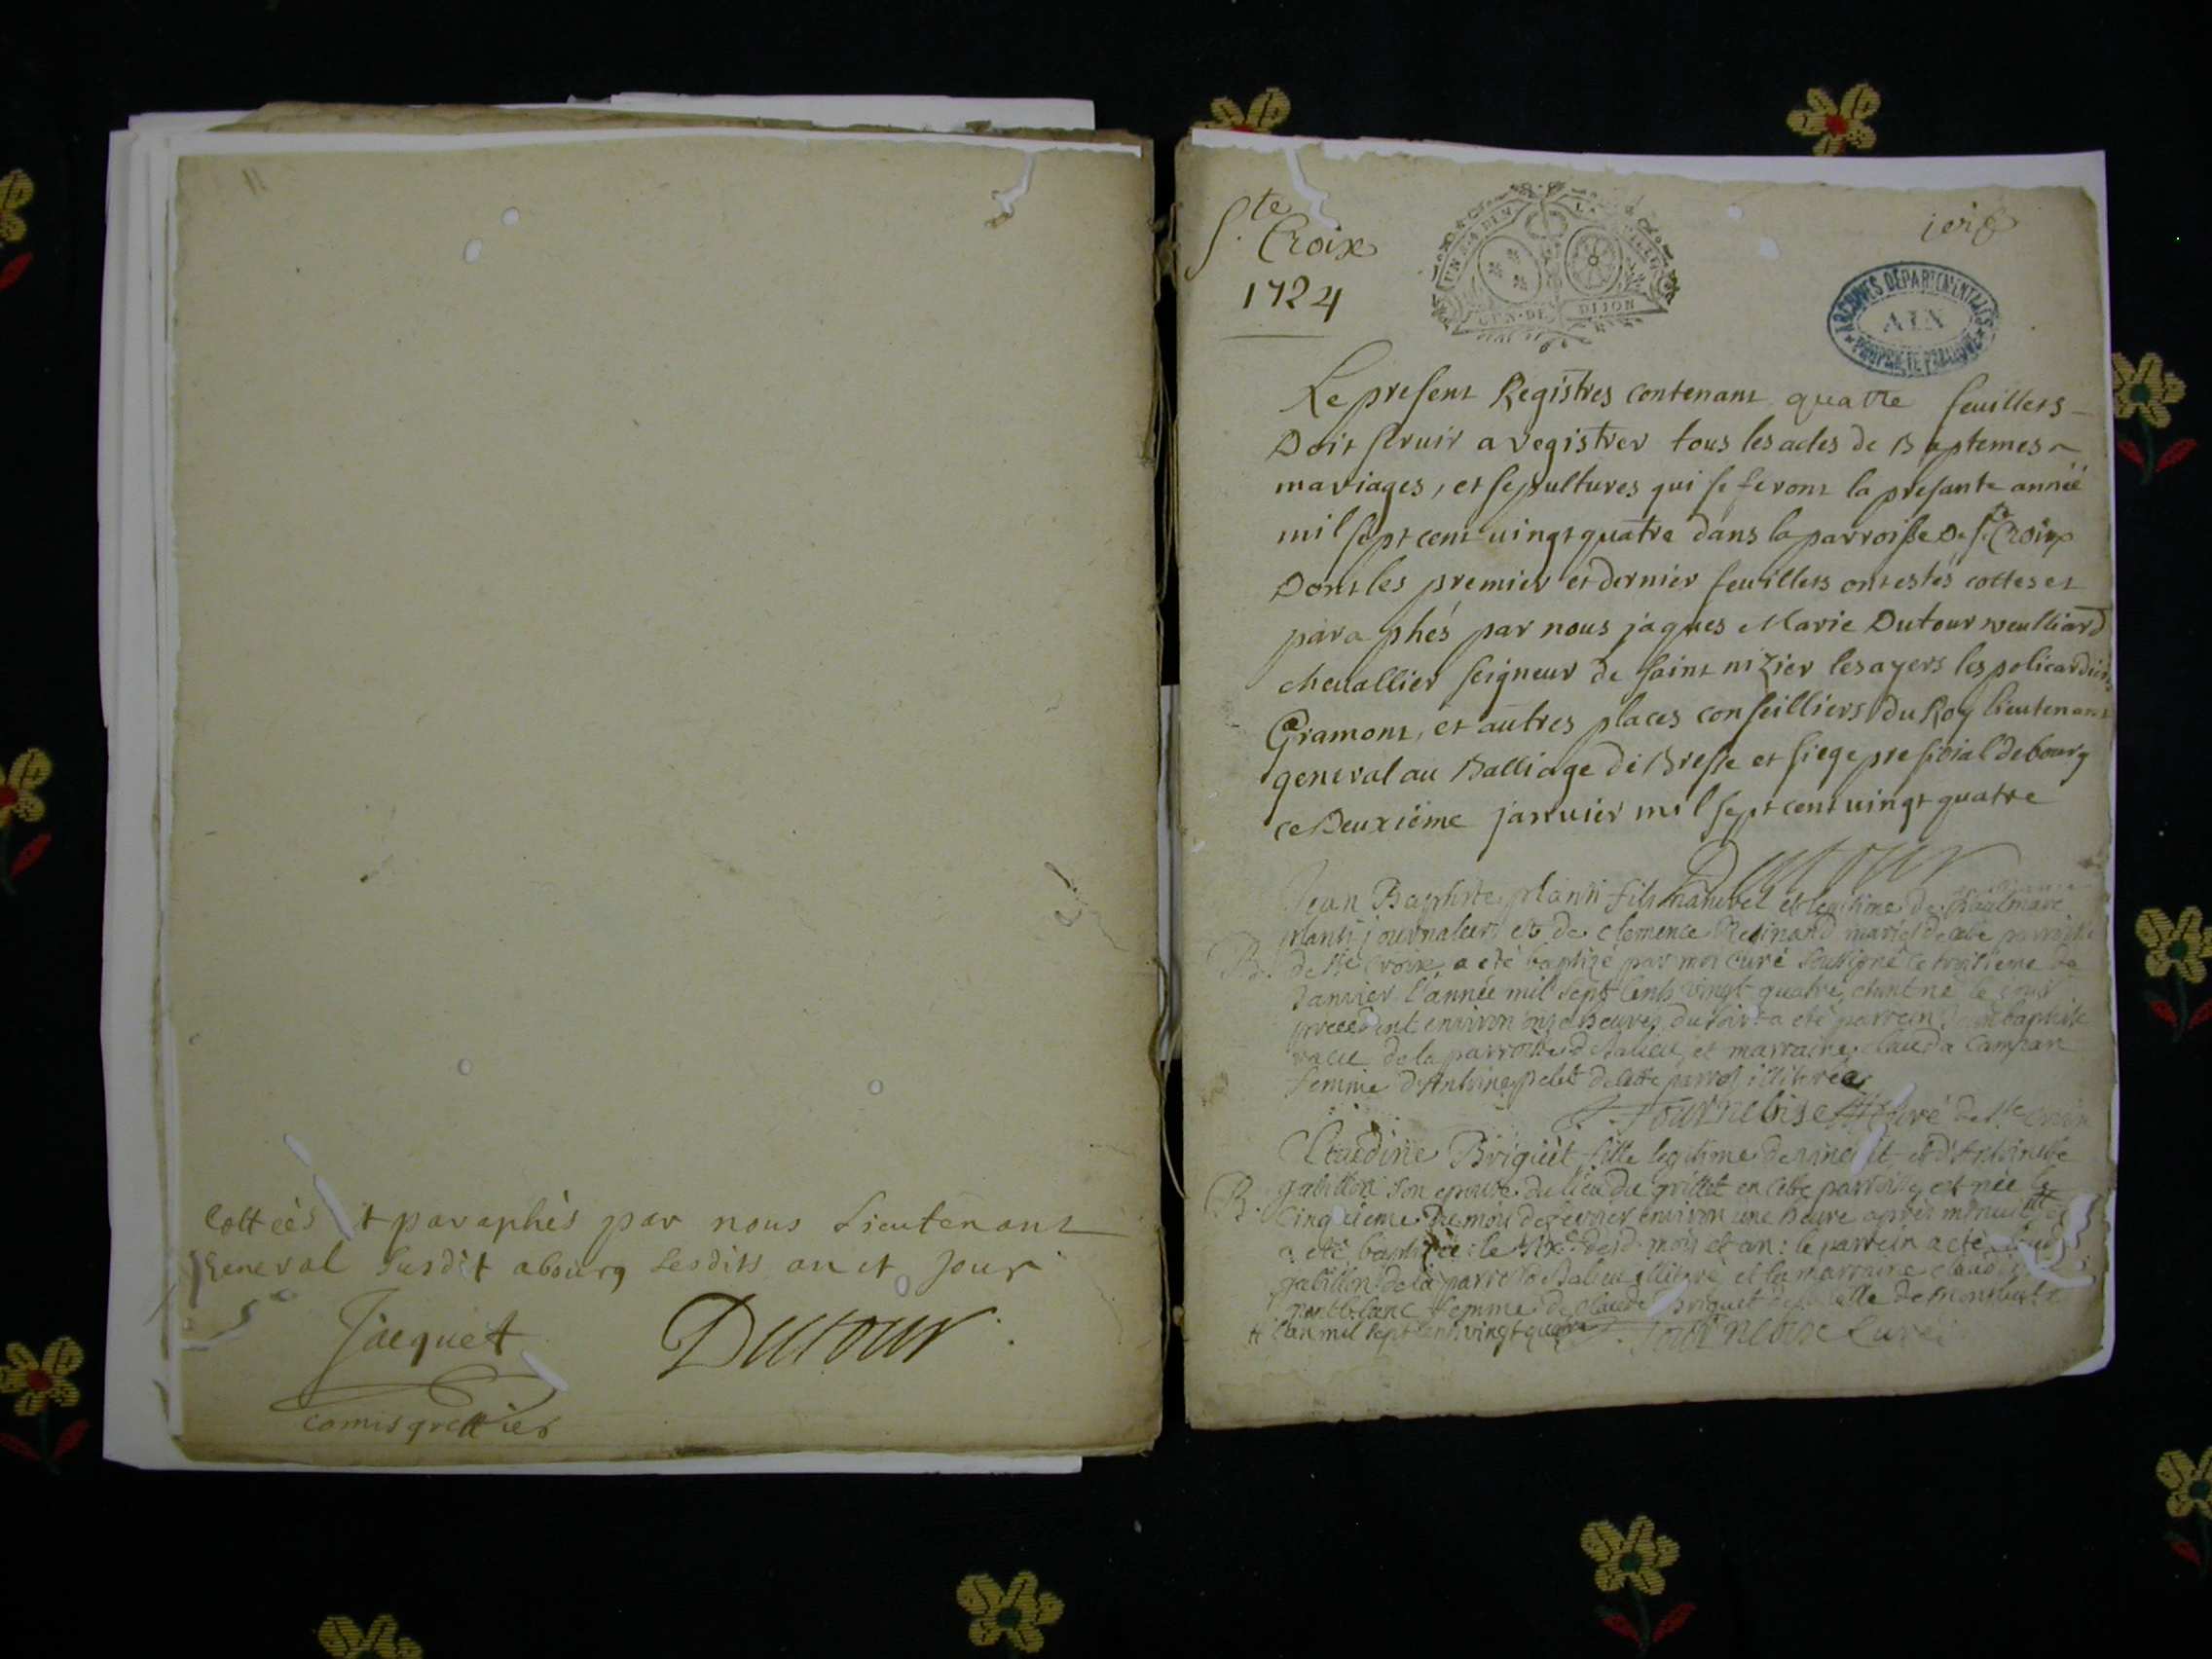 Cottées et paraphés par nous Lieutenant
General susdit a bourg lesdits an et jour
Jacquet
Dutour
comis greffier
Ste Croix
1724
GEN. DE DIJON
ARCHIVES DÉPARTEMENTALES
AIN
PROPRIÉTÉ PUBLIQUE
Le present Registres contenant quattre feuillets
Doit servir a registrer tous les actes de Baptemes
mariages, et sepultures qui se feront la presante année
mil sept cent vingt quatre dans la parroisse de Ste Croix
Dont les premier et dernier feuillets ont estés cottes et
paraphés par nous jaques Marie Dutour
chevallier seigneur de saint nizier
Gramont, et autres places conseilliers du Roy lieutenant
general au Balliage de Bresse et siege presidial de bourg
ce Deuxiéme janvier mil sept cent vingt quatre
Dutour
Jean Baptiste planti fils naturel et legitime de
planti journalier et de clemence mariés de cette parroisse
B. de Ste Croix a eté baptizé par moi curé soussigné le troisieme de
Janvier l'année mil sept cents vingt quatre, etant né le jour
precedent environ onze heures du soir a eté parrein baptiste
de la parroisse de Balieu, et marraine clauda
femme d'Antoine pelet de cette parrois illiterée
Tournebise Curé de Ste Croix
Claudine Briguet fille legitime de vincent et d'Antoinette
gabillon son epouse du lieu du grillet en cette parroisse, est née le
B. cinquieme du mois de fevrier environ une heure après minuit et
a eté baptizée le six dud. mois et an: le parrein a eté
gabillon de la parroisse de Balieu illiteré et la marraine
montblanc femme de claude Briguet de celle de
# l'an mil sept cents vingt quatre Tournebise Curé